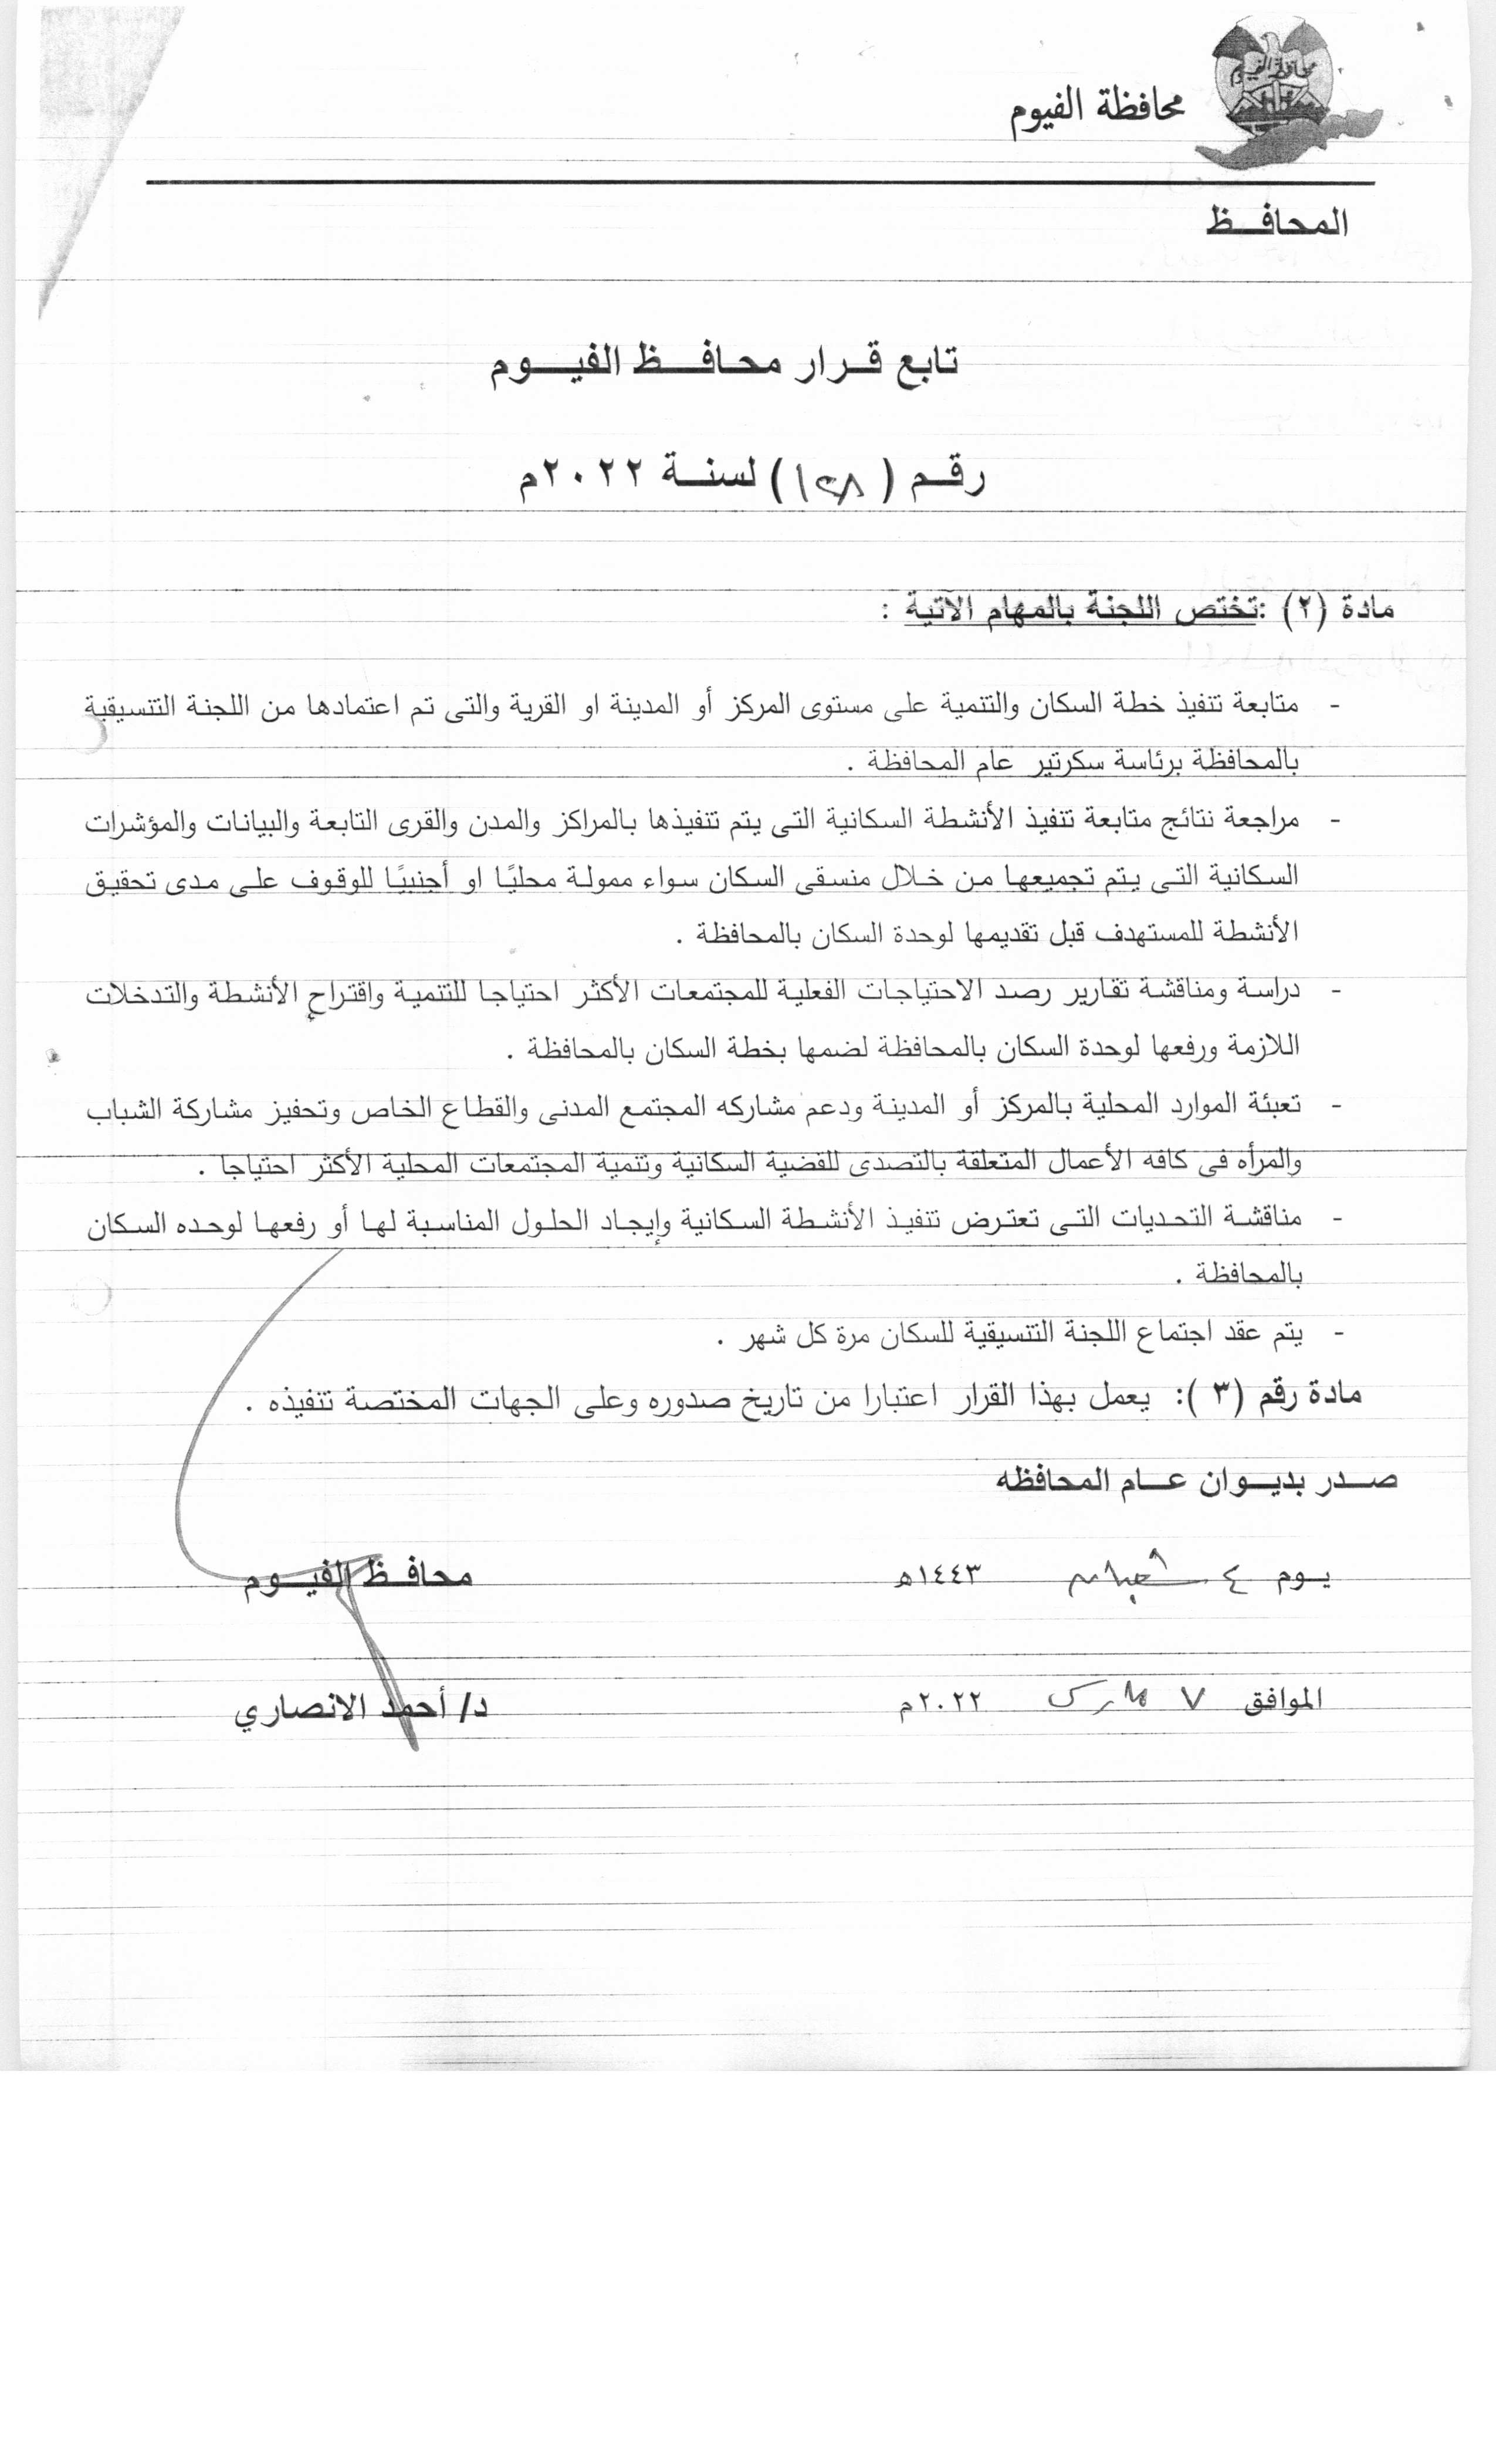 محافظة الفيوم
محافظة الفيوم
المحافـــظ
تابع قـرار محافـــظ الفيـــوم
رقـم ( ) لسنـة ٢٠٢٢م
مادة (٢) :تختص اللجنة بالمهام الآتية :
- متابعة تنفيذ خطة السكان والتنمية على مستوى المركز أو المدينة او القرية والتى تم اعتمادها من اللجنة التنسيقية
بالمحافظة برئاسة سكرتير عام المحافظة .
- مراجعة نتائج متابعة تنفيذ الأنشطة السكانية التى يتم تنفيذها بالمراكز والمدن والقرى التابعة والبيانات والمؤشرات
السكانية التى يتم تجميعها من خلال منسقى السكان سواء ممولة محليًا او أجنبيًا للوقوف على مدى تحقيق
الأنشطة للمستهدف قبل تقديمها لوحدة السكان بالمحافظة .
- دراسة ومناقشة تقارير رصد الاحتياجات الفعلية للمجتمعات الأكثر احتياجا للتنمية واقتراح الأنشطة والتدخلات
اللازمة ورفعها لوحدة السكان بالمحافظة لضمها بخطة السكان بالمحافظة .
- تعبئة الموارد المحلية بالمركز أو المدينة ودعم مشاركه المجتمع المدنى والقطاع الخاص وتحفيز مشاركة الشباب
والمرأه فى كافه الأعمال المتعلقة بالتصدى للقضية السكانية وتنمية المجتمعات المحلية الأكثر احتياجا .
- مناقشة التحديات التى تعترض تنفيذ الأنشطة السكانية وإيجاد الحلول المناسبة لها أو رفعها لوحده السكان
بالمحافظة .
- يتم عقد اجتماع اللجنة التنسيقية للسكان مرة كل شهر .
مادة رقم (٣ ): يعمل بهذا القرار اعتبارا من تاريخ صدوره وعلى الجهات المختصة تنفيذه .
صـدر بديـوان عـام المحافظه
يـوم ٤ شعبان ١٤٤٣هـ
محافـظ الفيـوم
الموافق ٧ مارس ٢٠٢٢م
د/ أحمد الانصاري